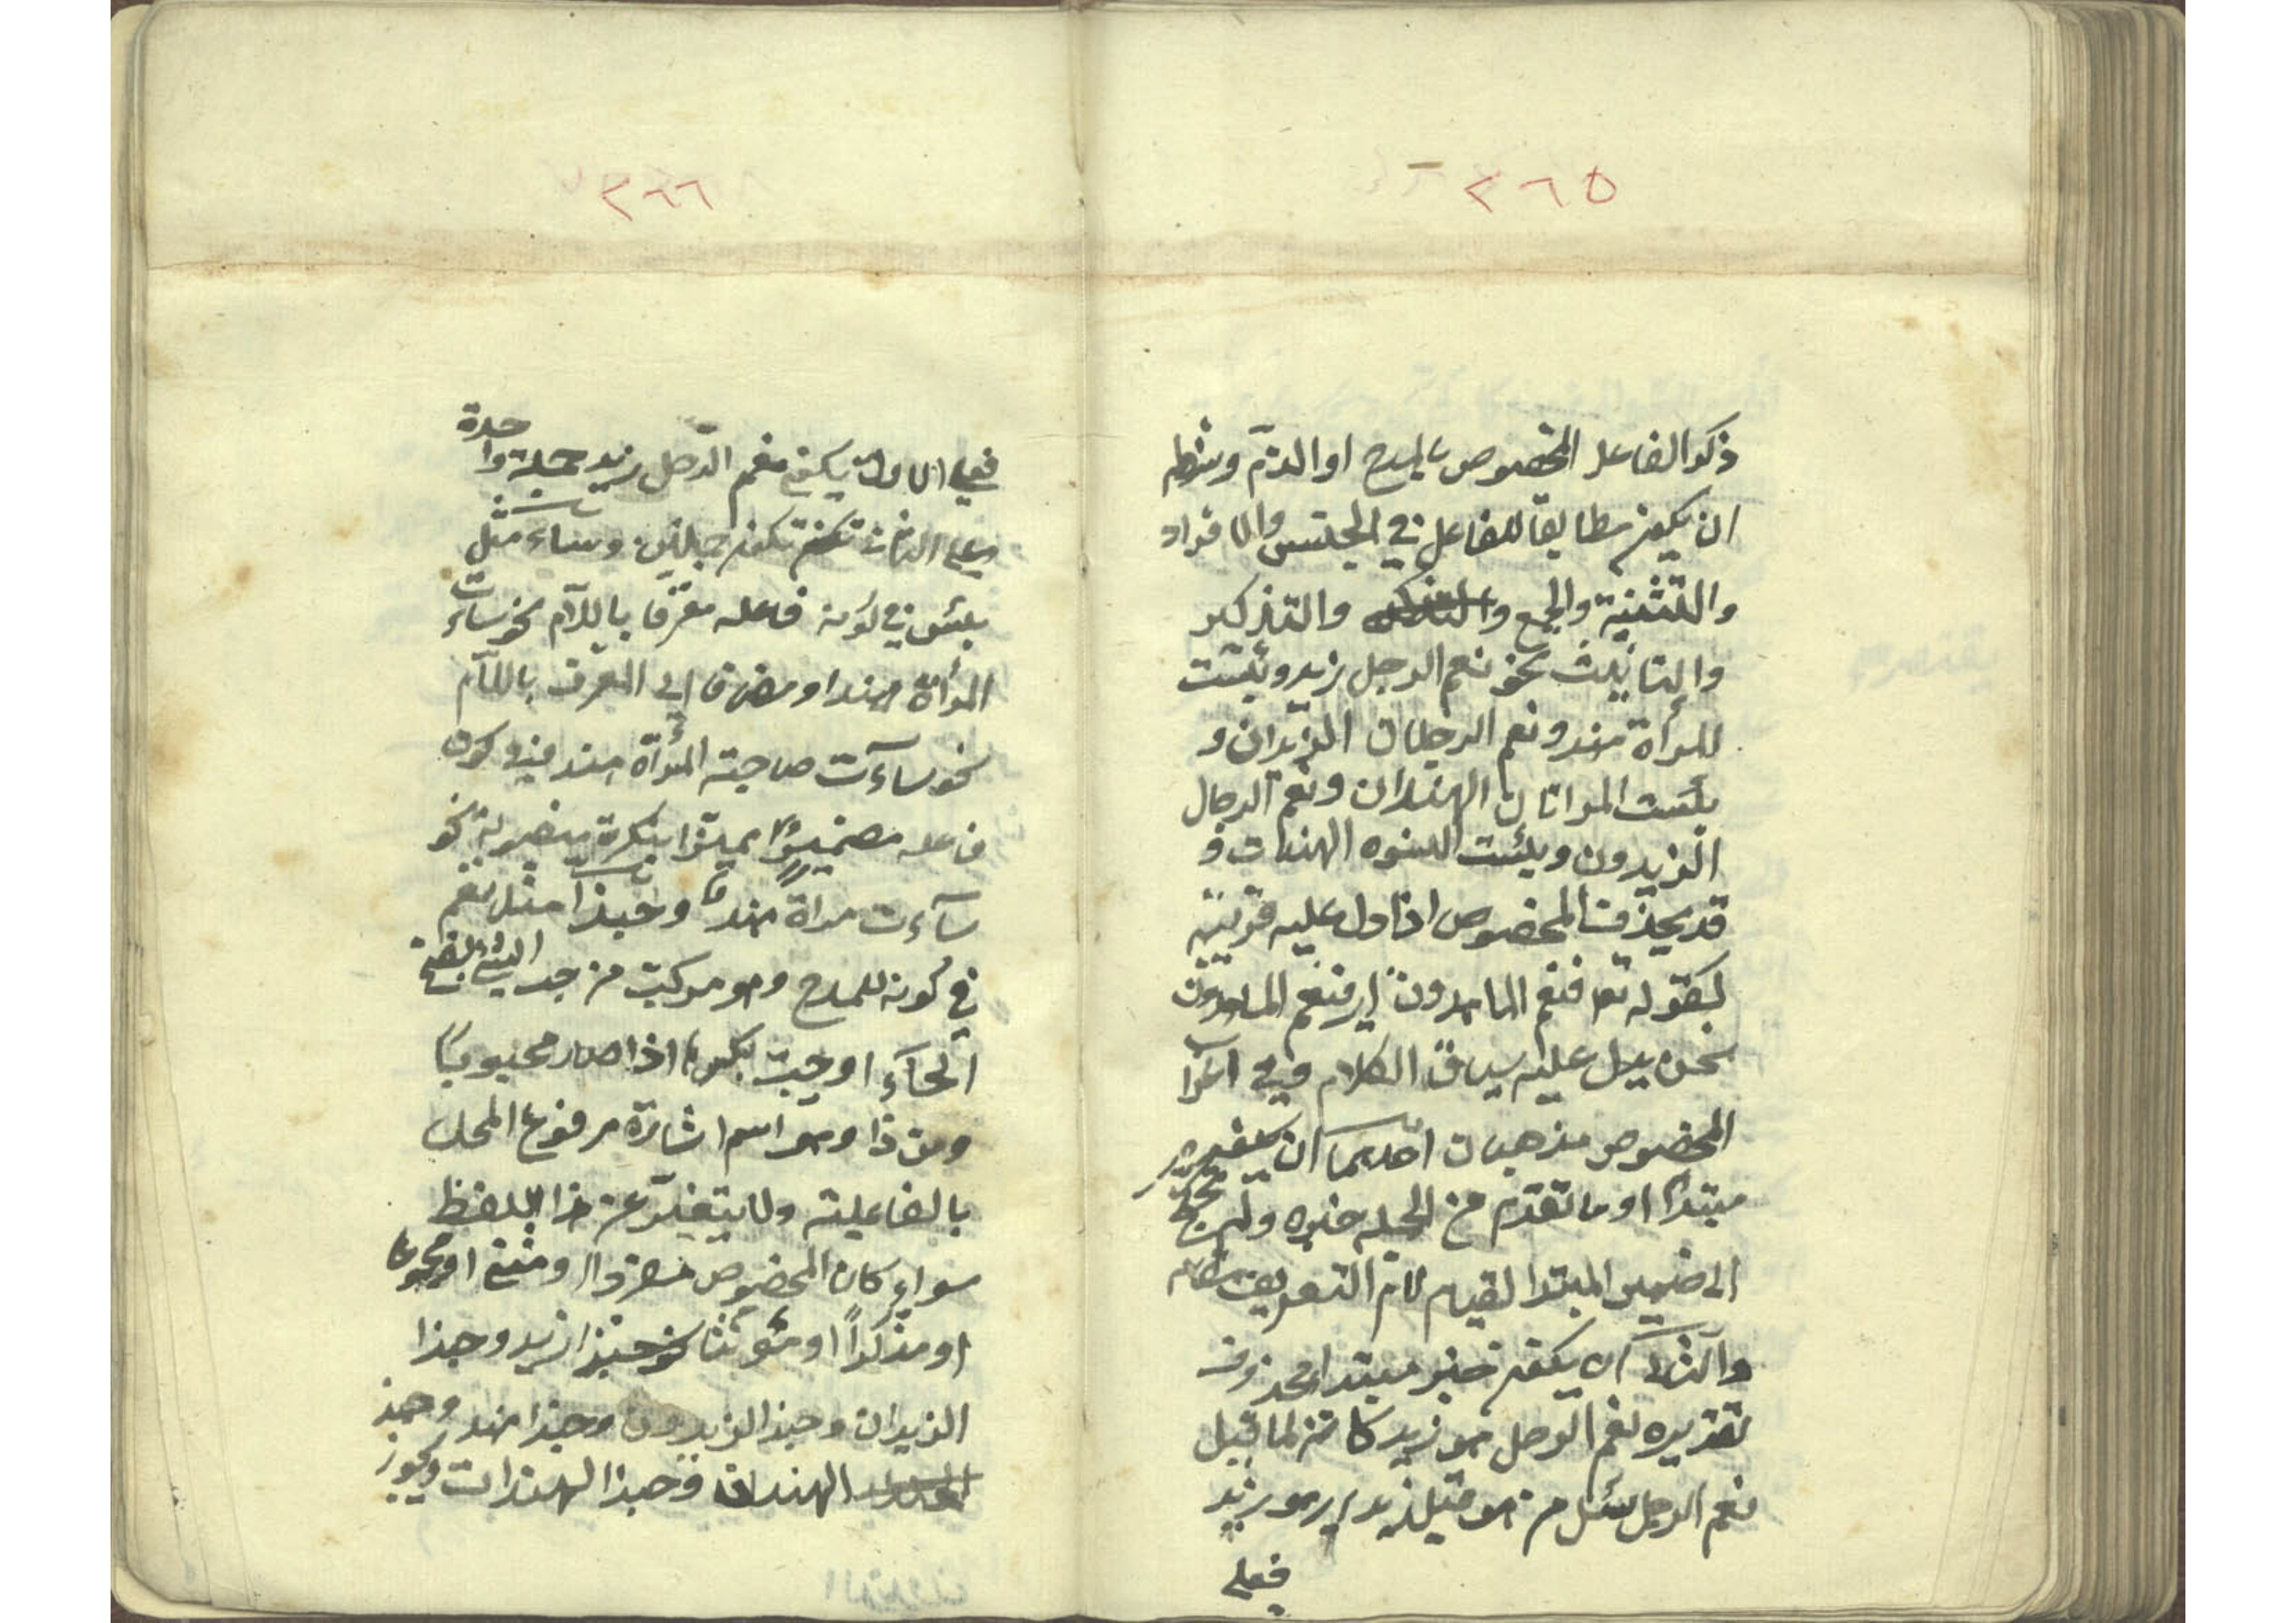 ٢٦٥
ذكر الفاعل المخصوص بالمدح او الذم وشرطه
ان يكون مطابقا للفاعل في الجنس والافراد
والتثنية والجمع والتذكير
والتانيث نحو نعم الرجل زيد وبئست
المرأة هند ونعم الرجلان الزيدان و
بئست المراتان الهندان ونعم الرجال
الزيدون وبئست النسوه الهندات و
قد يحذف المخصوص اذا دل عليه قرينة
كقوله تع فنعم الماهدون اي فنعم الماهدون
نحن يدل عليه سياق الكلام وفي
المخصوص مذهبان احدهما ان يكون
مبتدا او ما تقدم من الجملة خبره ولم يحتج
الى ضمير المبتدا لقيام لام التعريف مقامه
والثاني ان يكون خبر مبتدا محذوف
تقديره نعم الرجل هو زيد كانه لما قيل
نعم الرجل سئل من هو قيل زيد اي هو زيد
فعلى
٢٦٦
فعلى الاول يكون نعم الرجل زيد جملة واحدة
وعلى الثاني تكون جملتين وساء مثل
بئس في كونه فاعله معرفا باللام نحو ساءت
المرأة هند او مضافا الى المعرف باللام
نحو ساءت صاحبة المرأة هند وفي كون
فاعله مضميرا مميزا بنكرة منصوبة نحو
ساءت مراة هند وحبذا مثل نعم
في كونه للمدح وهو مركب من حب الشئ بفتح
الحاء او حبب بكسرها اذا صار محبوبا
ومن ذا وهو اسم اشارة مرفوع المحل
بالفاعلية ولا يتغير عن هذا اللفظ
سواء كان المخصوص مفردا او مثنى او مجموعا
او مذكرا او مؤنثا نحو حبذا زيد وحبذا
الزيدان وحبذا الزيدون وحبذا هند وحبذ
الهندان وحبذا الهندات ويجوز